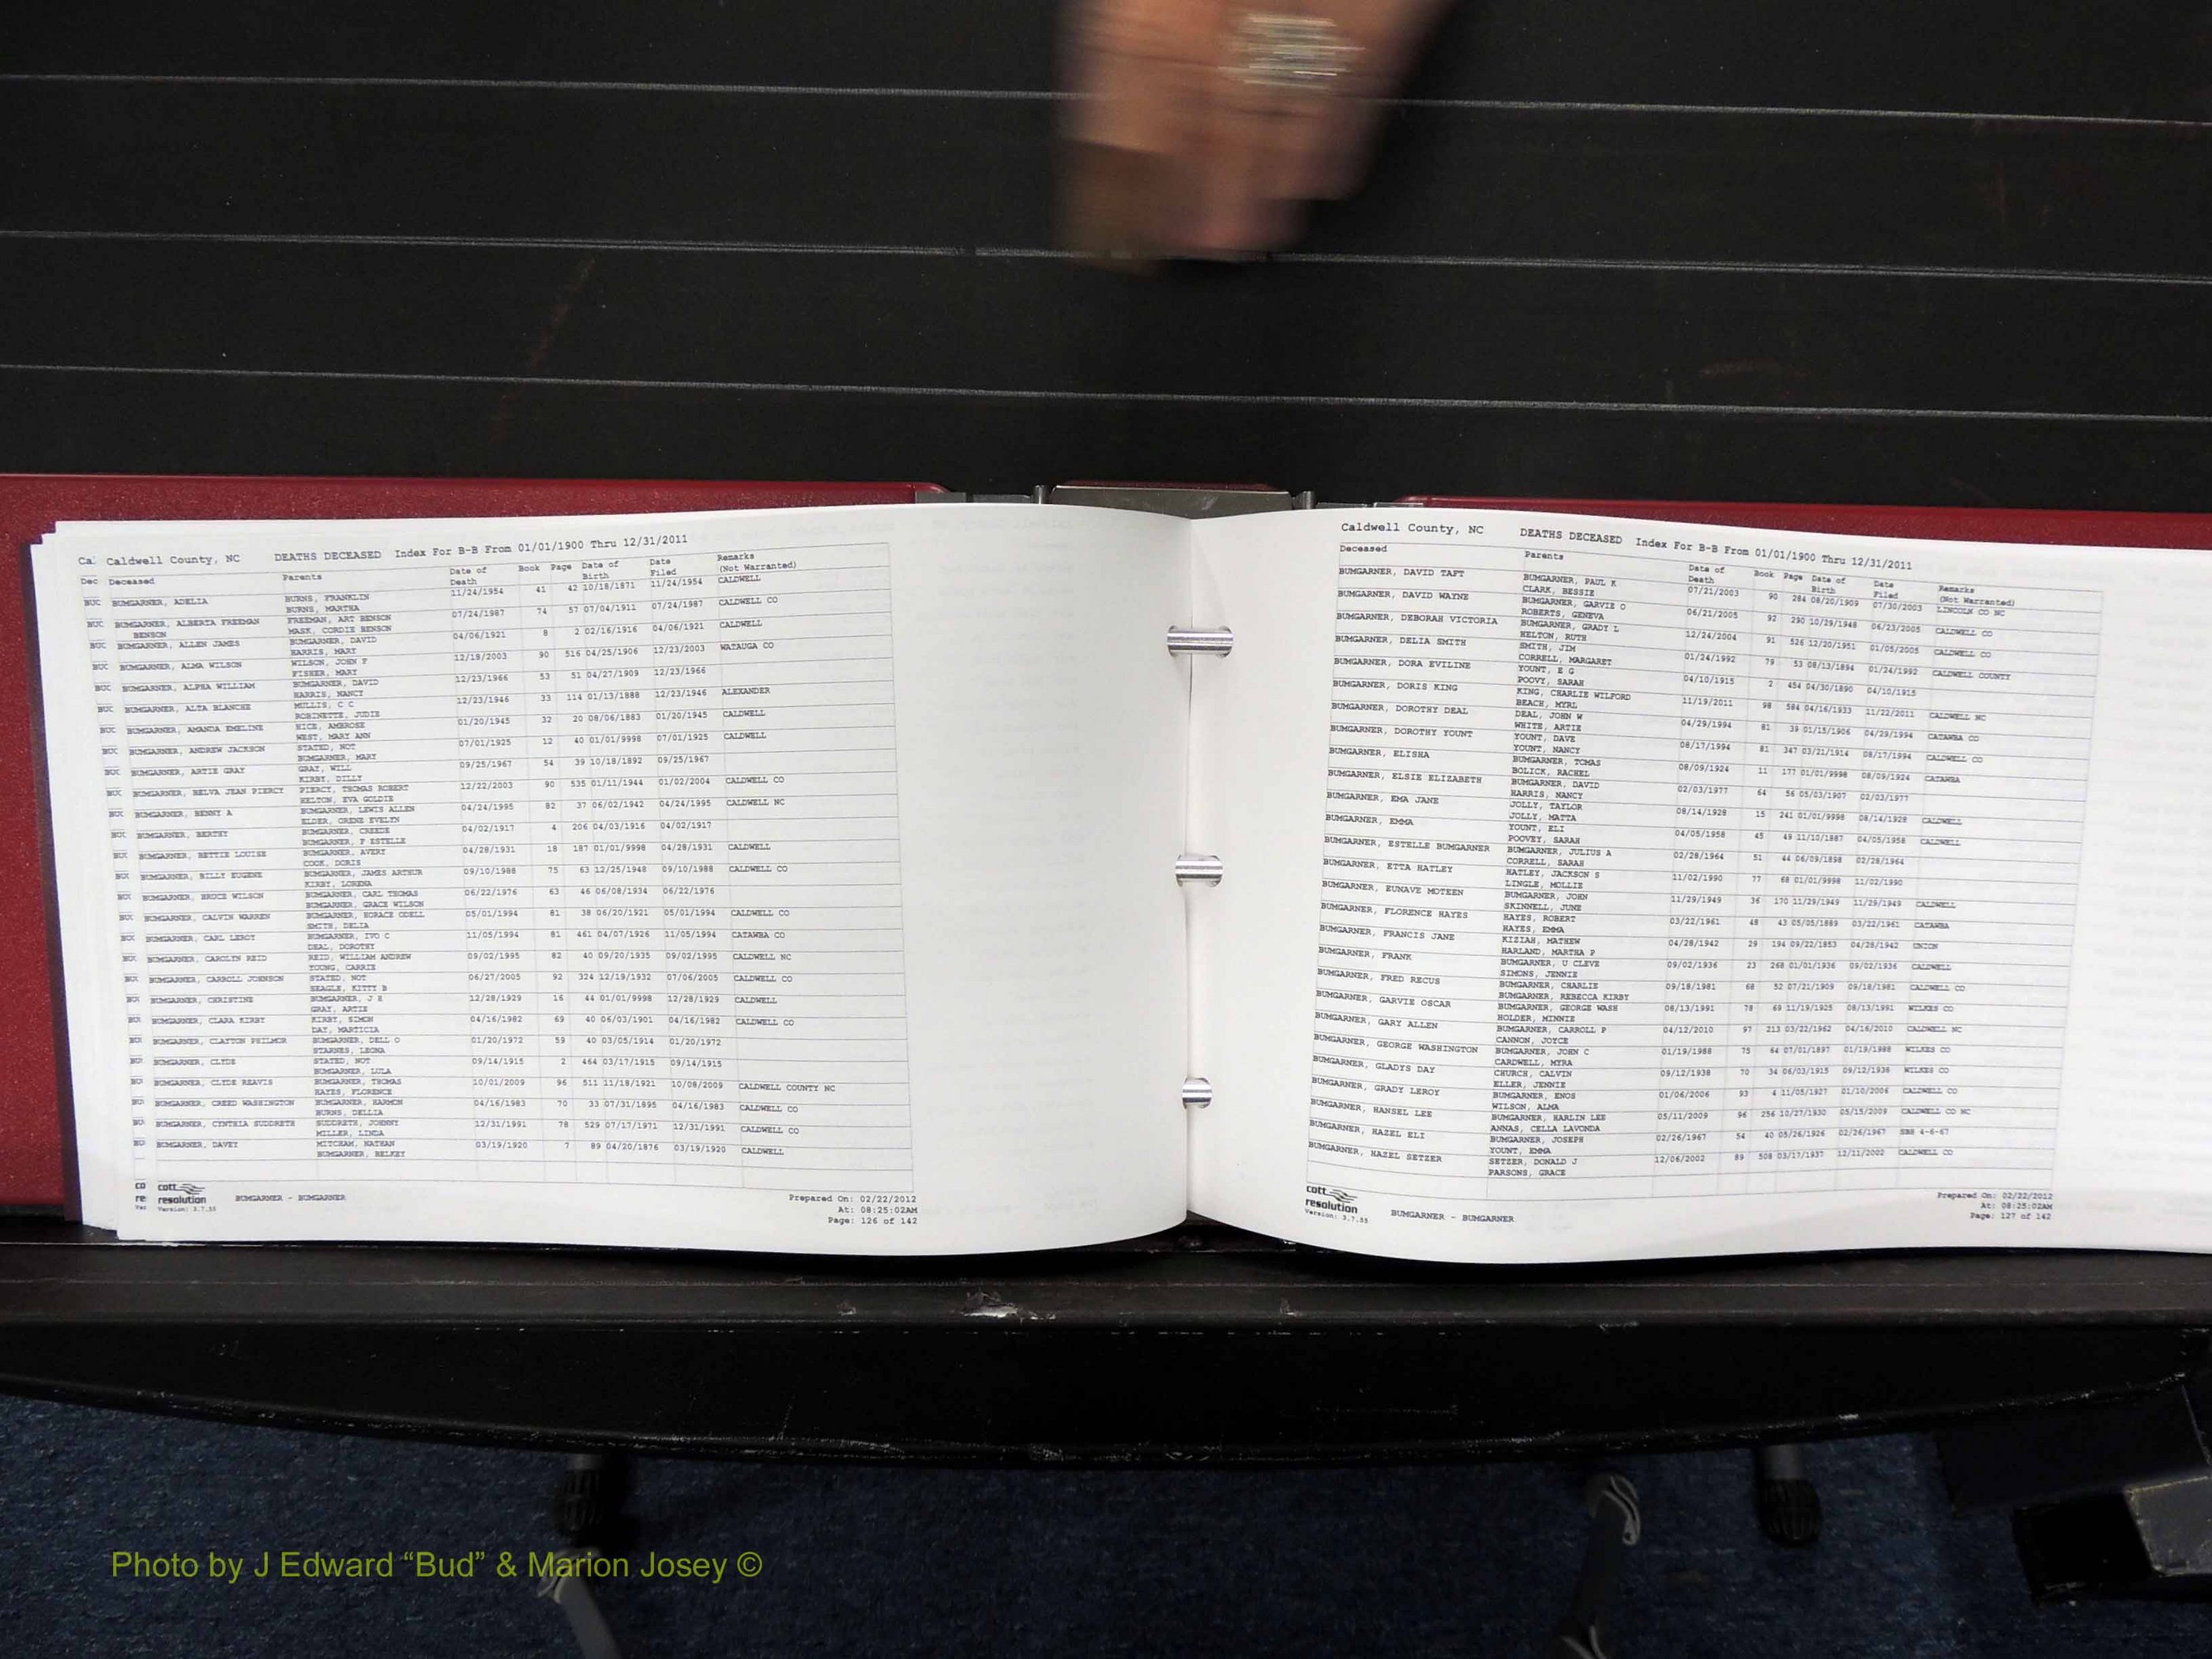 Ca: Caldwell County, NC DEATHS DECEASED Index For B-B From 01/01/1900 Thru 12/31/2011
Dec Deceased Parents Date of Death Book Page Date of Birth Date Filed Remarks (Not Warranted)
BUC BUMGARNER, ADELIA BURNS, FRANKLIN 11/24/1954 41 42 10/18/1871 11/24/1954 CALDWELL
BURNS, MARTHA
BUC BUMGARNER, ALBERTA FREEMAN FREEMAN, ART BENSON 07/24/1987 74 57 07/04/1911 07/24/1987 CALDWELL CO
BENSON MASK, CORDIE BENSON
BUC BUMGARNER, ALLEN JAMES BUMGARNER, DAVID 04/06/1921 8 2 02/16/1916 04/06/1921 CALDWELL
HARRIS, MARY
BUC BUMGARNER, ALMA WILSON WILSON, JOHN F 12/18/2003 90 516 04/25/1906 12/23/2003 WATAUGA CO
FISHER, MARY
BUC BUMGARNER, ALPHA WILLIAM BUMGARNER, DAVID 12/23/1966 53 51 04/27/1909 12/23/1966
HARRIS, NANCY
BUC BUMGARNER, ALTA BLANCHE MULLIS, C C 12/23/1946 33 114 01/13/1888 12/23/1946 ALEXANDER
ROBINETTE, JUDIE
BUC BUMGARNER, AMANDA EMELINE RICE, AMBROSE 01/20/1945 32 20 08/06/1883 01/20/1945 CALDWELL
WEST, MARY ANN
BUC BUMGARNER, ANDREW JACKSON STATED, NOT 07/01/1925 12 40 01/01/9998 07/01/1925 CALDWELL
BUMGARNER, MARY
BUC BUMGARNER, ARTIE GRAY GRAY, WILL 09/25/1967 54 39 10/18/1892 09/25/1967
KIRBY, DILLY
BUC BUMGARNER, BELVA JEAN PIERCY PIERCY, THOMAS ROBERT 12/22/2003 90 535 01/11/1944 01/02/2004 CALDWELL CO
HELTON, EVA GOLDIE
BUMGARNER, BENNY A BUMGARNER, LEWIS ALLEN 04/24/1995 82 37 06/02/1942 04/24/1995 CALDWELL NC
ELDER, ORENE EVELYN
BUMGARNER, BERTHY BUMGARNER, CREEDE 04/02/1917 4 206 04/03/1916 04/02/1917
BUMGARNER, P ESTELLE
BUMGARNER, BETTIE LOUISE BUMGARNER, AVERY 04/28/1931 18 187 01/01/9998 04/28/1931 CALDWELL
COOK, DORIS
BUMGARNER, BILLY EUGENE BUMGARNER, JAMES ARTHUR 09/10/1988 75 63 12/25/1948 09/10/1988 CALDWELL CO
KIRBY, LORENA
BUMGARNER, BRUCE WILSON BUMGARNER, CARL THOMAS 06/22/1976 63 46 06/08/1934 06/22/1976
BUMGARNER, GRACE WILSON
BUMGARNER, CALVIN WARREN BUMGARNER, HORACE ODELL 05/01/1994 81 38 06/20/1921 05/01/1994 CALDWELL CO
SMITH, DELIA
BUMGARNER, CARL LEROY BUMGARNER, IVO C 11/05/1994 81 461 04/07/1926 11/05/1994 CATAWBA CO
DEAL, DOROTHY
BUMGARNER, CAROLYN REID REID, WILLIAM ANDREW 09/02/1995 82 40 09/20/1935 09/02/1995 CALDWELL NC
YOUNG, CARRIE
BUMGARNER, CARROLL JOHNSON STATED, NOT 06/27/2005 92 324 12/19/1932 07/06/2005 CALDWELL CO
SEAGLE, KITTY B
BUMGARNER, CHRISTINE BUMGARNER, J H 12/28/1929 16 44 01/01/9998 12/28/1929 CALDWELL
GRAY, ARTIE
BUMGARNER, CLARA KIRBY KIRBY, SIMON 04/16/1982 69 40 06/03/1901 04/16/1982 CALDWELL CO
DAY, MARTICIA
BUMGARNER, CLAYTON PHILMOR BUMGARNER, DELL O 01/20/1972 59 40 03/05/1914 01/20/1972
STARNES, LEONA
BUMGARNER, CLYDE STATED, NOT 09/14/1915 2 464 03/17/1915 09/14/1915
BUMGARNER, LULA
BUMGARNER, CLYDE REAVIS BUMGARNER, THOMAS 10/01/2009 96 511 11/18/1921 10/08/2009 CALDWELL COUNTY NC
HAYES, FLORENCE
BUMGARNER, CREED WASHINGTON BUMGARNER, HARMON 04/16/1983 70 33 07/31/1895 04/16/1983 CALDWELL CO
BURNS, DELLIA
BUMGARNER, CYNTHIA SUDDRETH SUDDRETH, JOHNNY 12/31/1991 78 529 07/17/1971 12/31/1991 CALDWELL CO
MILLER, LINDA
BUMGARNER, DAVEY MITCHAM, NATHAN 03/19/1920 7 89 04/20/1876 03/19/1920 CALDWELL
BUMGARNER, BELKEY
co cott
re resolution BUMGARNER - BUMGARNER Prepared On: 02/22/2012
Ver Version: 3.7.55 At: 08:25:02AM
Page: 126 of 142
Caldwell County, NC DEATHS DECEASED Index For B-B From 01/01/1900 Thru 12/31/2011
Deceased Parents Date of Death Book Page Date of Birth Date Filed Remarks (Not Warranted)
BUMGARNER, DAVID TAFT BUMGARNER, PAUL K 07/21/2003 90 284 08/20/1909 07/30/2003 LINCOLN CO NC
CLARK, BESSIE
BUMGARNER, DAVID WAYNE BUMGARNER, GARVIE O 06/21/2005 92 290 10/29/1948 06/23/2005 CALDWELL CO
ROBERTS, GENEVA
BUMGARNER, DEBORAH VICTORIA BUMGARNER, GRADY L 12/24/2004 91 526 12/20/1951 01/05/2005 CALDWELL CO
HELTON, RUTH
BUMGARNER, DELIA SMITH SMITH, JIM 01/24/1992 79 53 08/13/1894 01/24/1992 CALDWELL COUNTY
CORRELL, MARGARET
BUMGARNER, DORA EVILINE YOUNT, E G 04/10/1915 2 454 04/30/1890 04/10/1915
POOVY, SARAH
BUMGARNER, DORIS KING KING, CHARLIE WILFORD 11/19/2011 98 584 04/16/1933 11/22/2011 CALDWELL NC
BEACH, MYRL
BUMGARNER, DOROTHY DEAL DEAL, JOHN W 04/29/1994 81 39 01/15/1906 04/29/1994 CATAWBA CO
WHITE, ARTIE
BUMGARNER, DOROTHY YOUNT YOUNT, DAVE 08/17/1994 81 347 03/21/1914 08/17/1994 CALDWELL CO
YOUNT, NANCY
BUMGARNER, ELISHA BUMGARNER, TOMAS 08/09/1924 11 177 01/01/9998 08/09/1924 CATAWBA
BOLICK, RACHEL
BUMGARNER, ELSIE ELIZABETH BUMGARNER, DAVID 02/03/1977 64 56 05/03/1907 02/03/1977
HARRIS, NANCY
BUMGARNER, EMA JANE JOLLY, TAYLOR 08/14/1928 15 241 01/01/9998 08/14/1928 CALDWELL
JOLLY, MATTA
BUMGARNER, EMMA YOUNT, ELI 04/05/1958 45 49 11/10/1887 04/05/1958 CALDWELL
POOVEY, SARAH
BUMGARNER, ESTELLE BUMGARNER BUMGARNER, JULIUS A 02/28/1964 51 44 06/09/1898 02/28/1964
CORRELL, SARAH
BUMGARNER, ETTA HATLEY HATLEY, JACKSON S 11/02/1990 77 68 01/01/9998 11/02/1990
LINGLE, MOLLIE
BUMGARNER, EUNAVE MOTEEN BUMGARNER, JOHN 11/29/1949 36 170 11/29/1949 11/29/1949 CALDWELL
SKINNELL, JUNE
BUMGARNER, FLORENCE HAYES HAYES, ROBERT 03/22/1961 48 43 05/05/1889 03/22/1961 CATAWBA
HAYES, EMMA
BUMGARNER, FRANCIS JANE KIZIAH, MATHEW 04/28/1942 29 194 09/22/1853 04/28/1942 UNION
HARLAND, MARTHA P
BUMGARNER, FRANK BUMGARNER, U CLEVE 09/02/1936 23 268 01/01/1936 09/02/1936 CALDWELL
SIMONS, JENNIE
BUMGARNER, FRED RECUS BUMGARNER, CHARLIE 09/18/1981 68 52 07/21/1909 09/18/1981 CALDWELL CO
BUMGARNER, REBECCA KIRBY
BUMGARNER, GARVIE OSCAR BUMGARNER, GEORGE WASH 08/13/1991 78 69 11/19/1925 08/13/1991 WILKES CO
HOLDER, MINNIE
BUMGARNER, GARY ALLEN BUMGARNER, CARROLL P 04/12/2010 97 213 03/22/1962 04/16/2010 CALDWELL NC
CANNON, JOYCE
BUMGARNER, GEORGE WASHINGTON BUMGARNER, JOHN C 01/19/1988 75 64 07/01/1897 01/19/1988 WILKES CO
CARDWELL, MYRA
BUMGARNER, GLADYS DAY CHURCH, CALVIN 09/12/1938 70 34 06/03/1915 09/12/1938 WILKES CO
ELLER, JENNIE
BUMGARNER, GRADY LEROY BUMGARNER, ENOS 01/06/2006 93 4 11/05/1927 01/10/2006 CALDWELL CO
WILSON, ALMA
BUMGARNER, HANSEL LEE BUMGARNER, HARLIN LEE 05/11/2009 96 256 10/27/1930 05/15/2009 CALDWELL CO NC
ANNAS, CELLA LAVONDA
BUMGARNER, HAZEL ELI BUMGARNER, JOSEPH 02/26/1967 54 40 05/26/1926 02/26/1967 SBH 4-6-67
YOUNT, EMMA
BUMGARNER, HAZEL SETZER SETZER, DONALD J 12/06/2002 89 508 03/17/1937 12/11/2002 CALDWELL CO
PARSONS, GRACE
cott
resolution BUMGARNER - BUMGARNER Prepared On: 02/22/2012
Version: 3.7.55 At: 08:25:02AM
Page: 127 of 142
Photo by J Edward “Bud” & Marion Josey ©